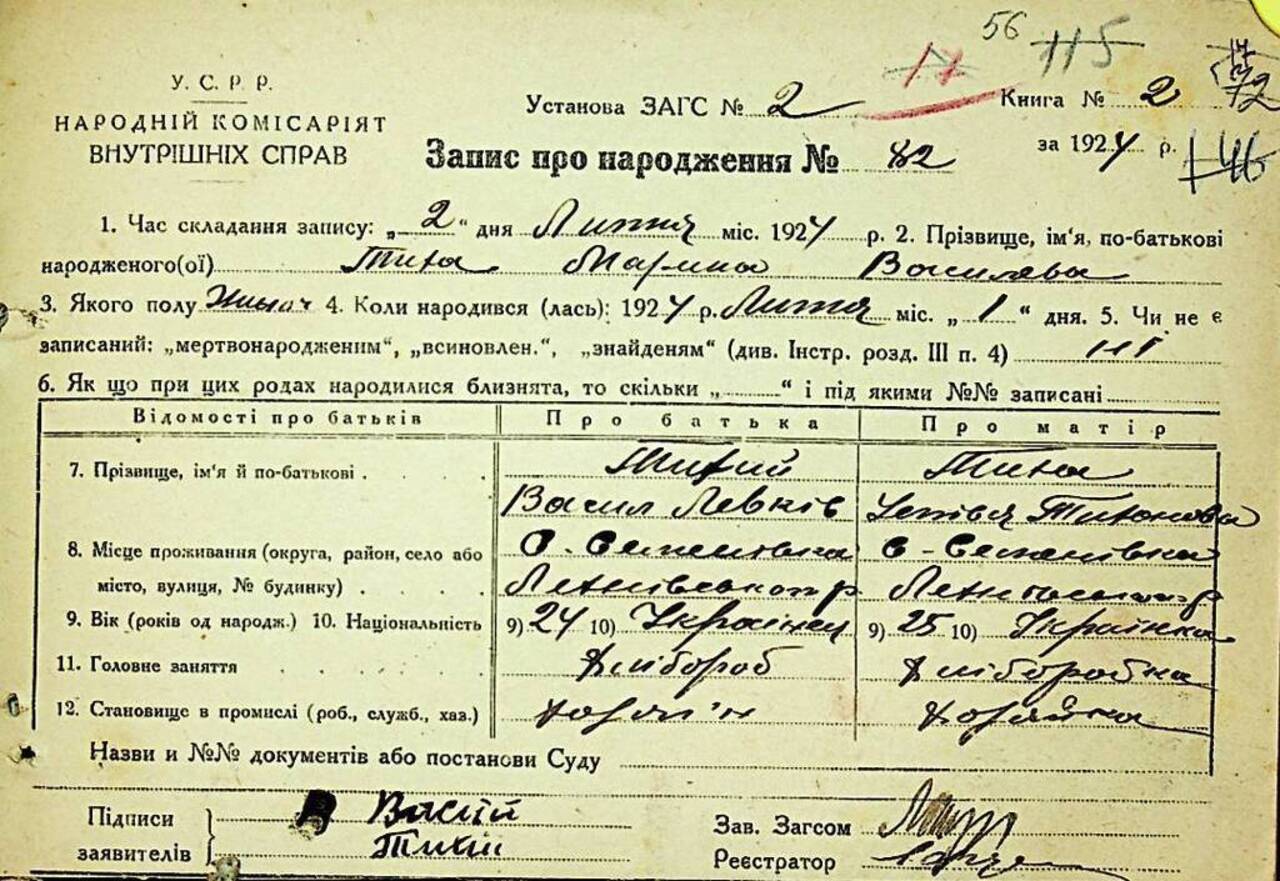 56 115
У. С. Р. Р.
НАРОДНІЙ КОМІСАРІЯТ
ВНУТРІШНІХ СПРАВ
Установа ЗАГС № 2
Книга № 2 72
Запис про народження № 82
за 1924 р. 146
1. Час складання запису: „2“ дня Лютня міс. 1924 р. 2. Прізвище, ім‘я, по-батькові
народженого(ої) Тиха Марина Василева
3. Якого полу 4. Коли народився (лась): 1924 р. Лютня міс. „1“ дня. 5. Чи не є
записаний: „мертвонародженим“, „всиновлен.“, „знайденям“ (див. Інстр. розд. III п. 4) ні
6. Як що при цих родах народилися близнята, то скільки „ “ і під якими №№ записані
Відомості про батьків Про батька Про матір
7. Прізвище, ім‘я й по-батькові Тихий Тиха
Васил Левків Тихонова
8. Місце проживання (округа, район, село або С-Семенівка С-Семенівка
місто, вулиця, № будинку)
9. Вік (років од народж.) 10. Національність 9) 24 10) Українец 9) 25 10) Українка
11. Головне заняття Хлібороб Хліборобка
12. Становище в промислі (роб., служб., хаз.) Хозяїн Хозяйка
Назви и №№ документів або постанови Суду
Підписи Васій
заявителів Тихій
Зав. Загсом
Реєстратор